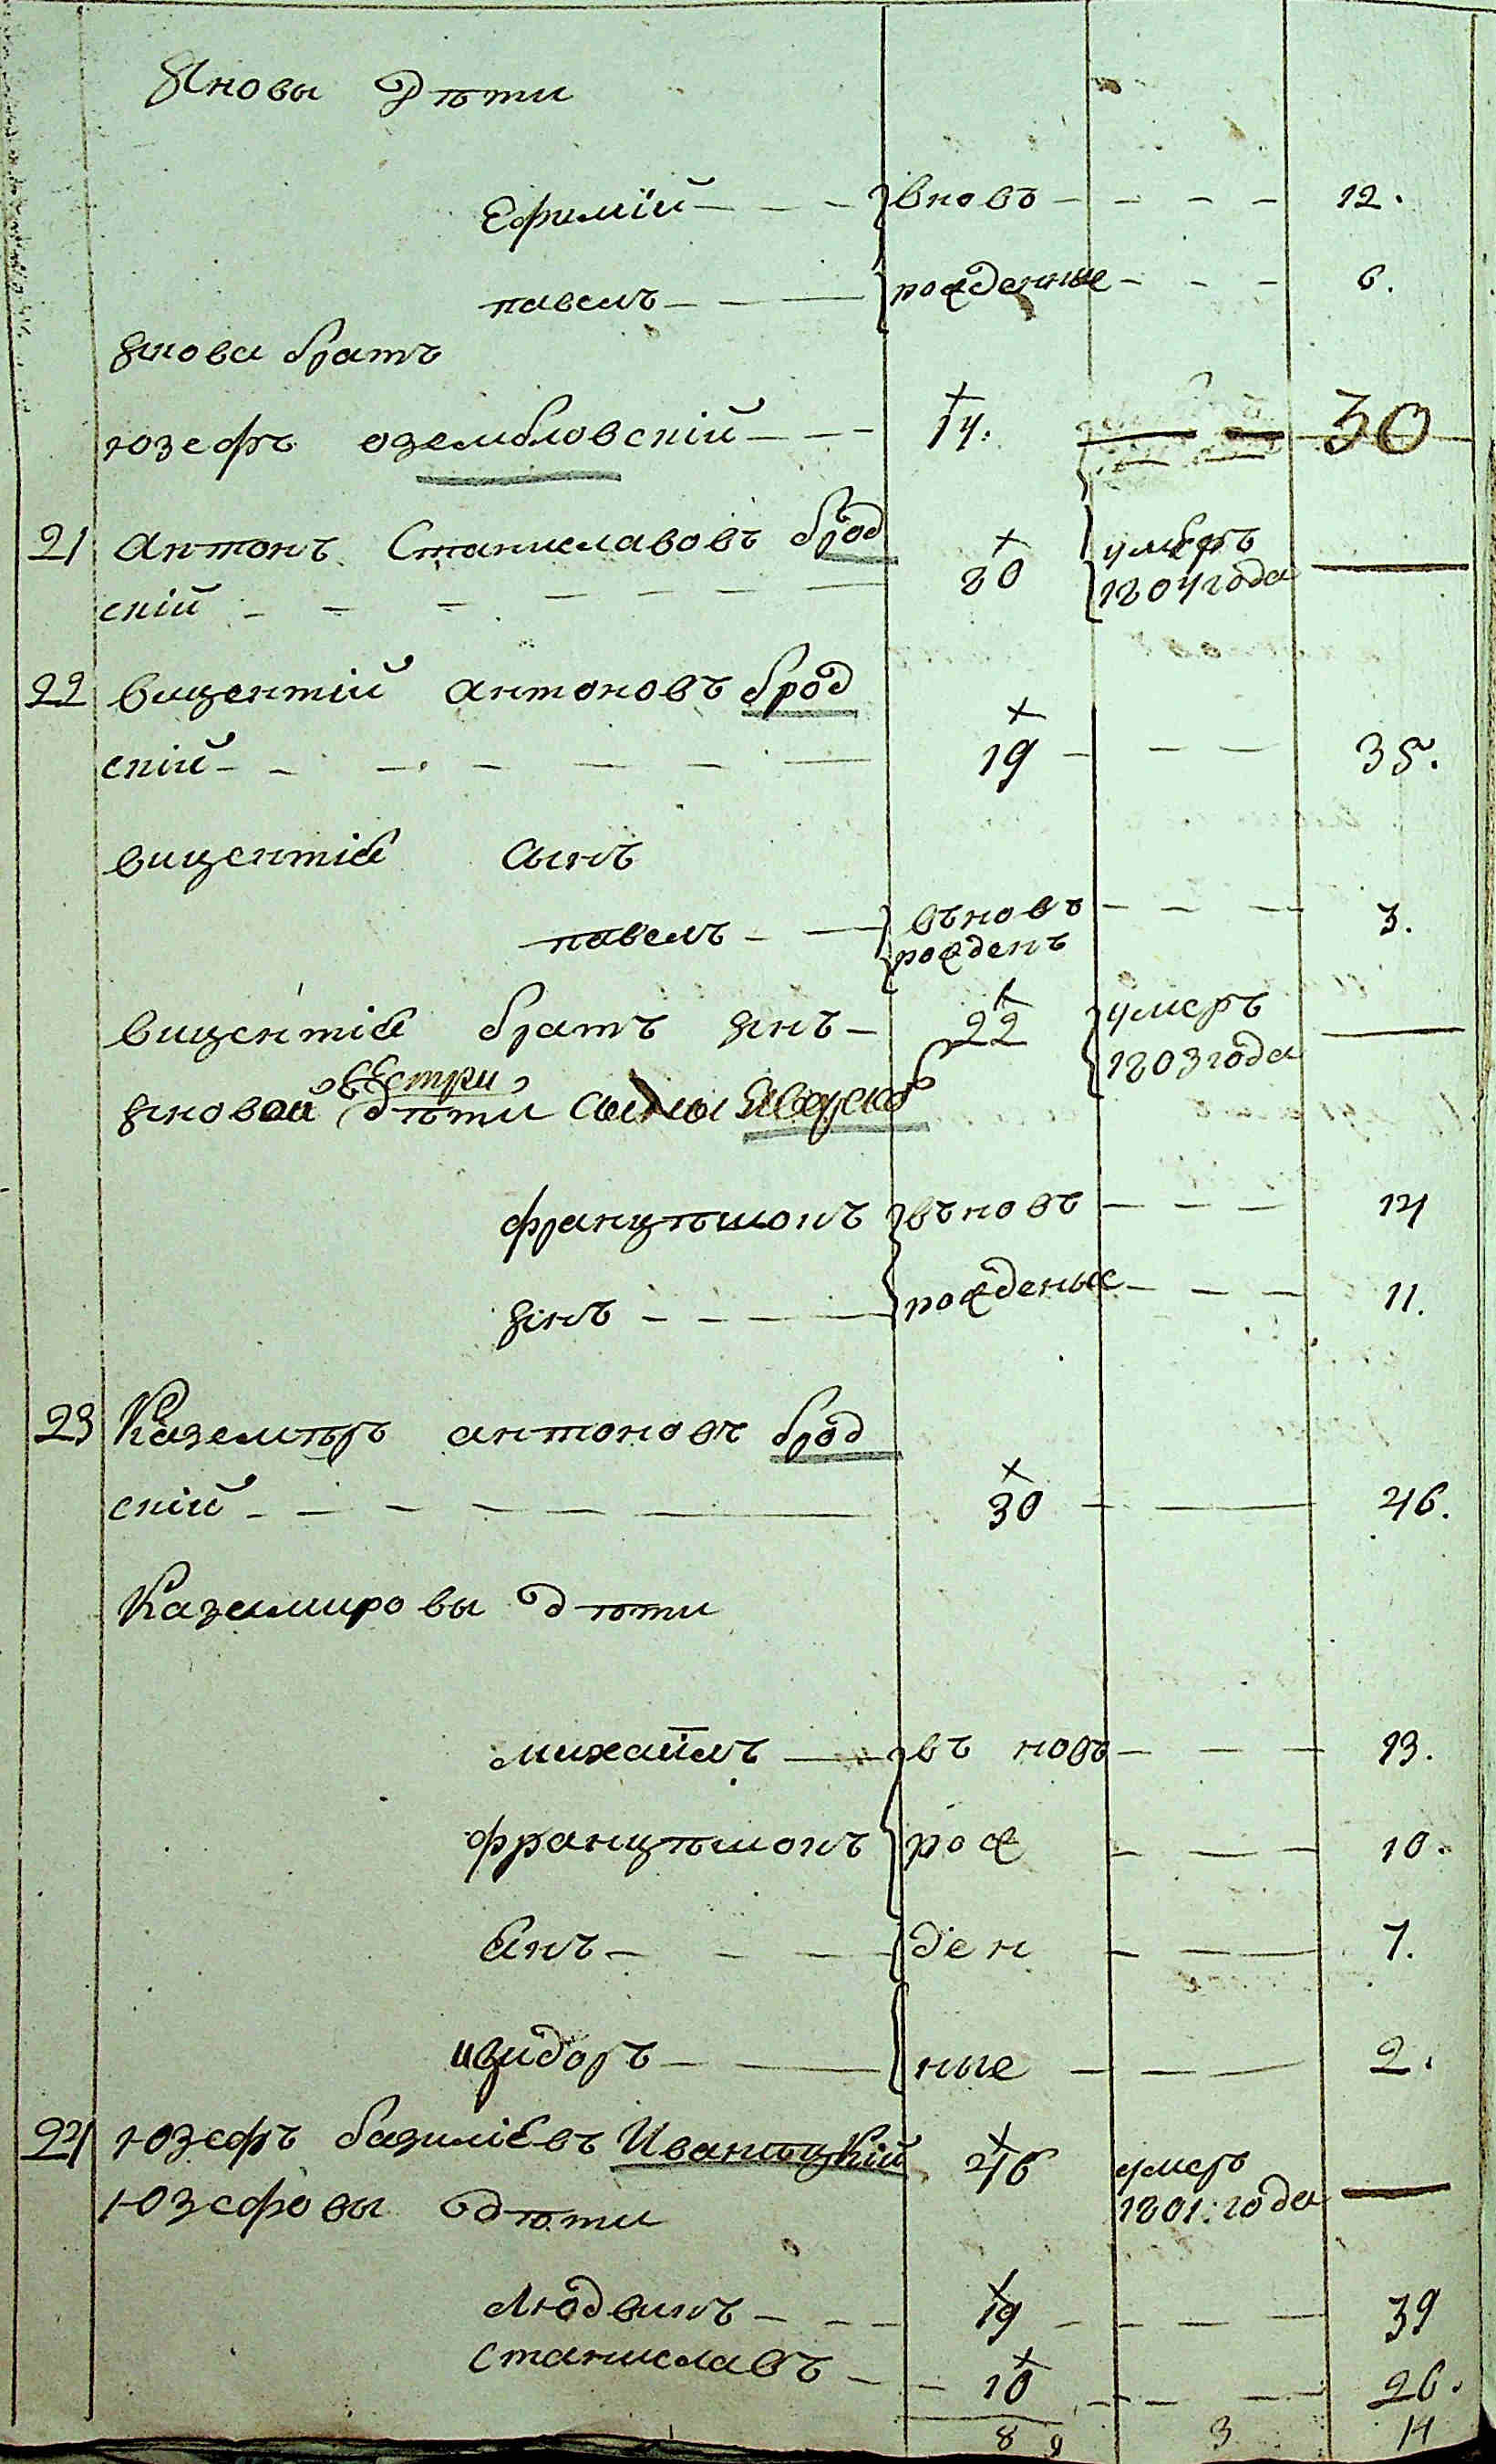 Яновы дѣти
Ефимій — — — вновь — — — — 12.
павелъ — — — рожденные — — — 6.
янова братъ
юзефъ озембловскій — — — 14. 30
21 антонъ Станиславовъ брод умеръ
скій — — — — — — — 80 1804 года —
22 вицентій антоновъ брод
скій — — — — — — 19 — — — 35.
вицентіа сынъ
павелъ — — въновъ — — — 3.
рожденъ
вицентіа братъ янъ — 22 умеръ
1803 года —
сестри
яновой дѣти сыны
францѣшокъ въновъ — — — 14
янъ — — — — рожденые — — — 11.
23 Каземѣръ антоновъ брод
скій — — — — — — 30 — — 46.
Каземировы дѣти
михаилъ — въ новъ — — — 13.
францѣшокъ рож — — — 10.
Янъ — — — ден — — 7.
изидоръ — — ные — — — 2.
24 юзефъ базиліевъ Иванѣцкій 46 умеръ
Юзефовы дѣти 1801: года —
Людвикъ — — — 19 — — — — 39
станиславъ — — 10 — — — — 26.
8 9 3 14